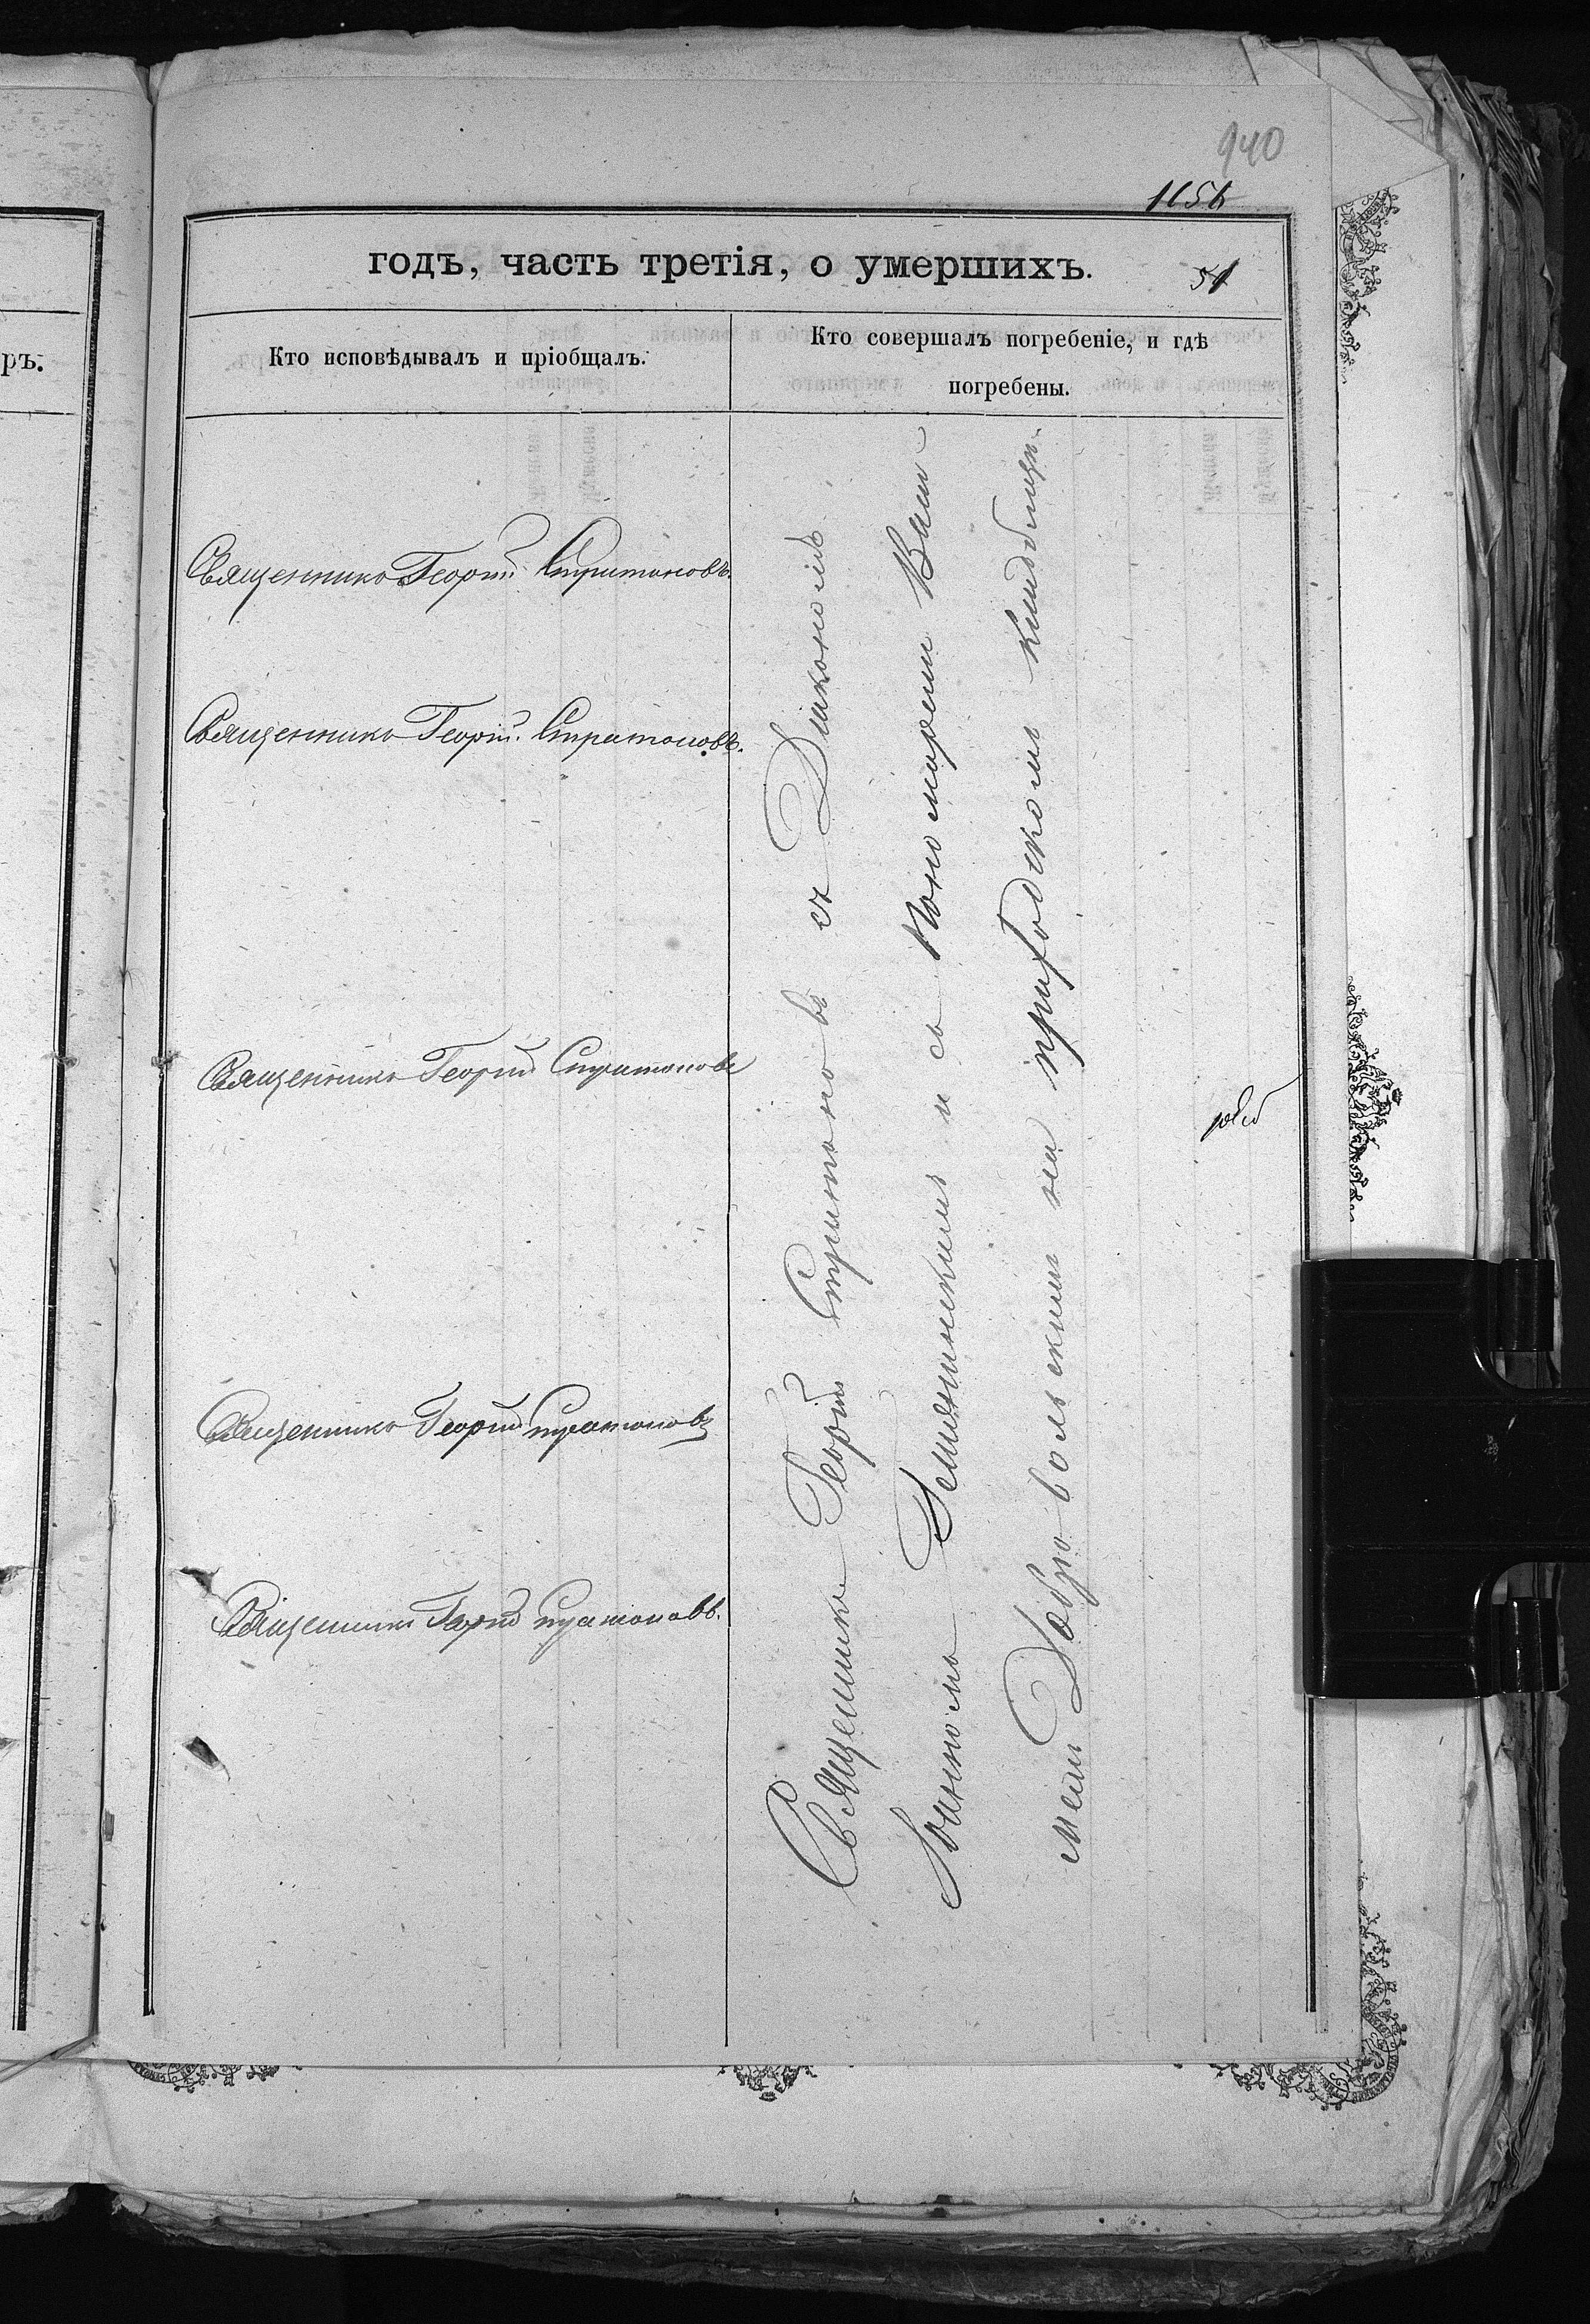 940
1156
годъ, часть третія, о умершихъ.
51
ръ.
Кто исповѣдывалъ и пріобщалъ.
Кто совершалъ погребеніе, и гдѣ
погребены.
Священникъ Георгій Стратоновъ.
Священникъ Георгій Стратоновъ.
Священникъ Георгій Стратоновъ
Священникъ Георгій Стратоновъ
Священникъ Георгій Стратоновъ.
Священникъ Георгій Стратоновъ съ Діакономъ
Іоанномъ и съ Пономаремъ Васи-
ліемъ Добровольскимъ на приходскомъ кладбищѣ.